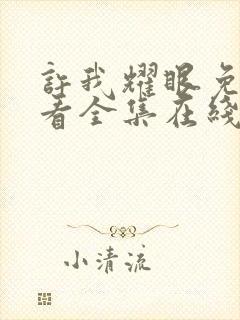 許我耀眼免
看全集在綫
小清流